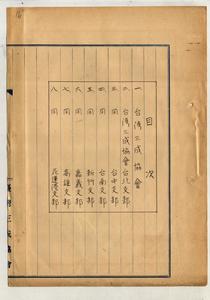 目次
一 台湾三成協會
二 台湾三成協會台北支部
三 同 台中支部
四 同 台南支部
五 同 新竹支部
六 同 嘉義支部
七 同 高雄支部
八 同 花蓮港支部